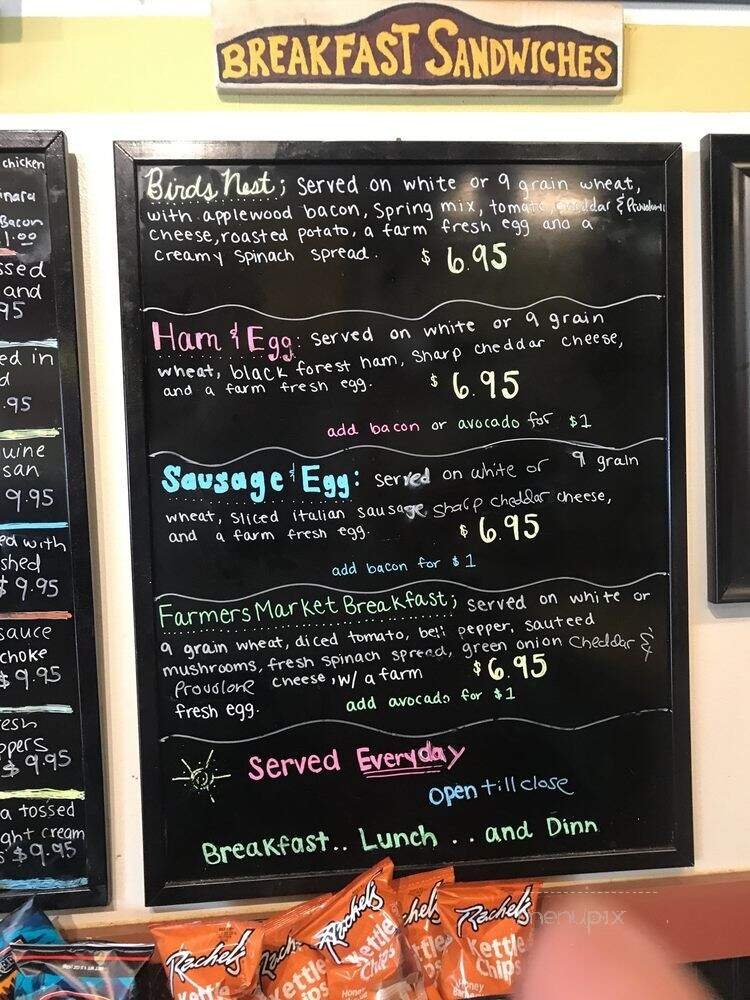 BREAKFAST SANDWICHES
Birds Nest; Served on white or 9 grain wheat,
with applewood bacon, Spring mix, tomato, cheddar & Provolone
cheese, roasted potato, a farm fresh egg and a
creamy spinach spread. $ 6.95
Ham & Egg: served on white or 9 grain
wheat, black forest ham, sharp cheddar cheese,
and a farm fresh egg. $ 6.95
add bacon or avocado for $1
Sausage & Egg: served on white or 9 grain
wheat, sliced italian sausage, sharp cheddar cheese,
and a farm fresh egg. $ 6.95
add bacon for $1
Farmers Market Breakfast; served on white or
9 grain wheat, diced tomato, bell pepper, sauteed
mushrooms, fresh spinach spread, green onion Cheddar &
Provolone cheese, w/ a farm $6.95
fresh egg. add avocado for $1
Served Everyday
open till close
Breakfast.. Lunch .. and Dinn
chicken
inara
Bacon
1.00
ssed
and
95
ed in
d
.95
uine
san
9.95
ed with
shed
$ 9.95
sauce
choke
$ 9.95
esh
ppers
$ 9.95
a tossed
ght cream
$ 9.95
Rachel's
Kettle
Rach
Kettle
ips
Rachel's
Kettle
Chips
Hone
chel's
ttle
ps
Rachel's
Kettle
Chips
Honey
menupix